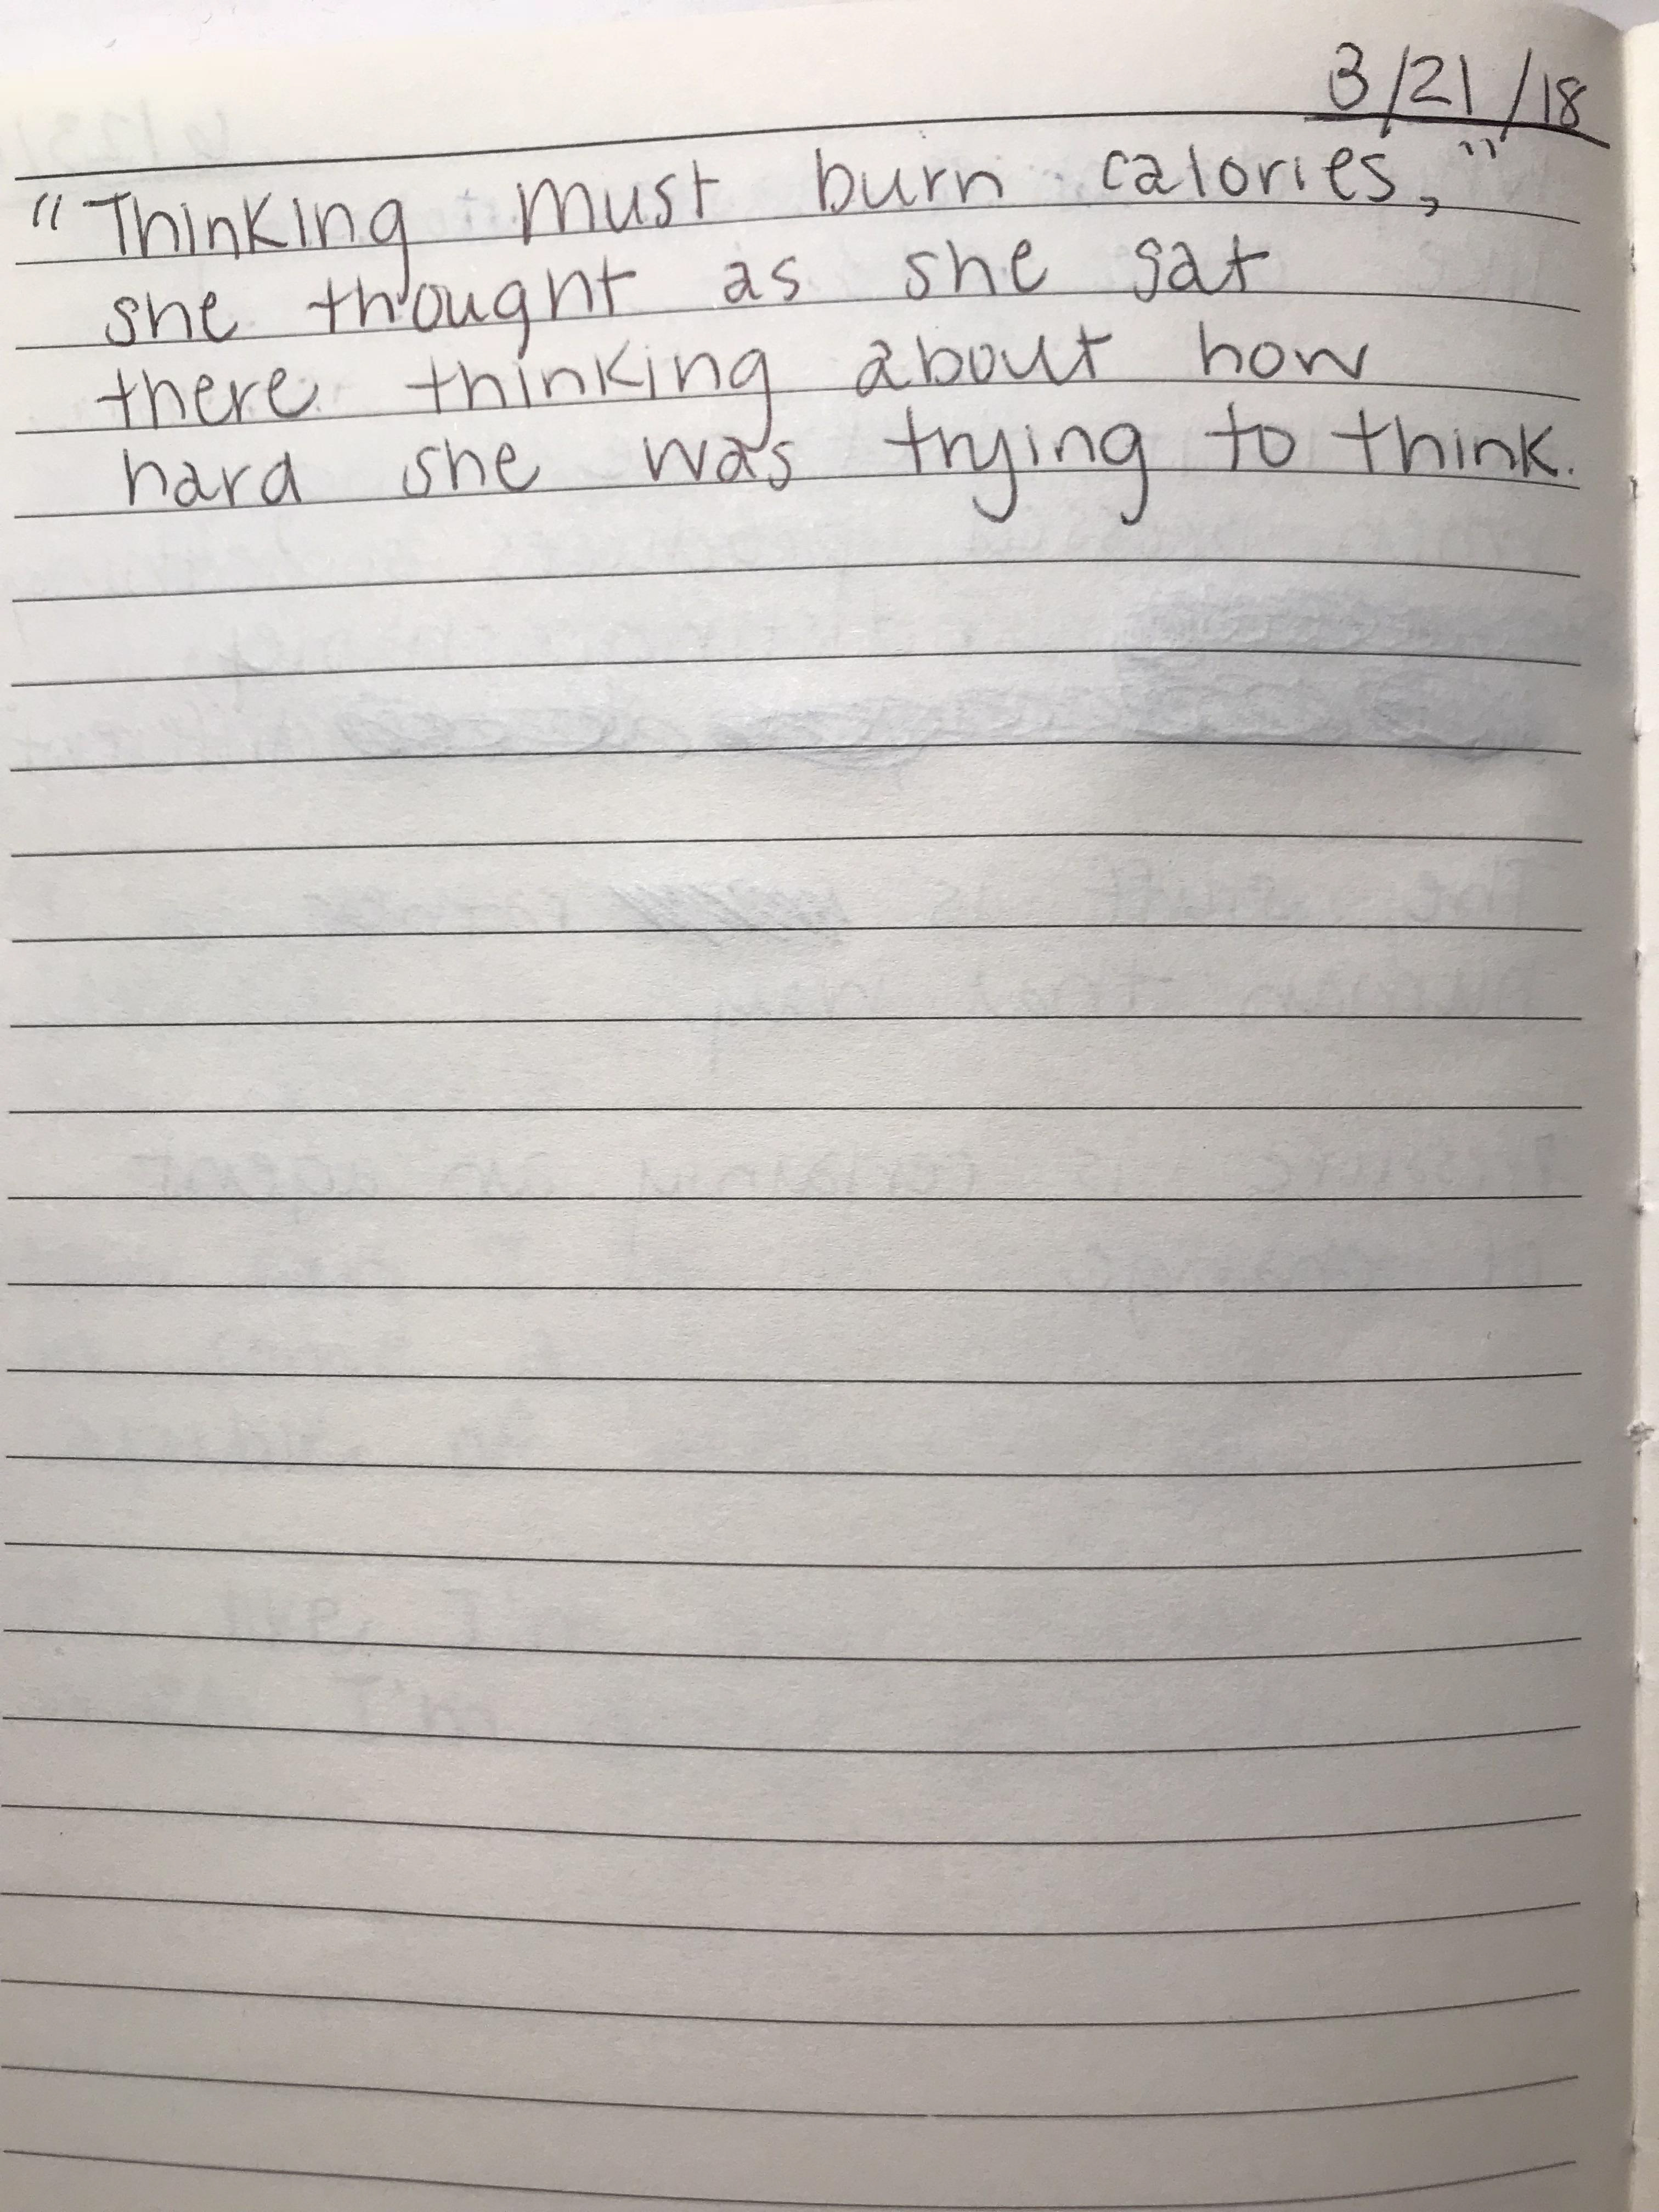 3/21/18
"Thinking must burn calories,"
she thought as she sat
there thinking about how
hard she was trying to think.